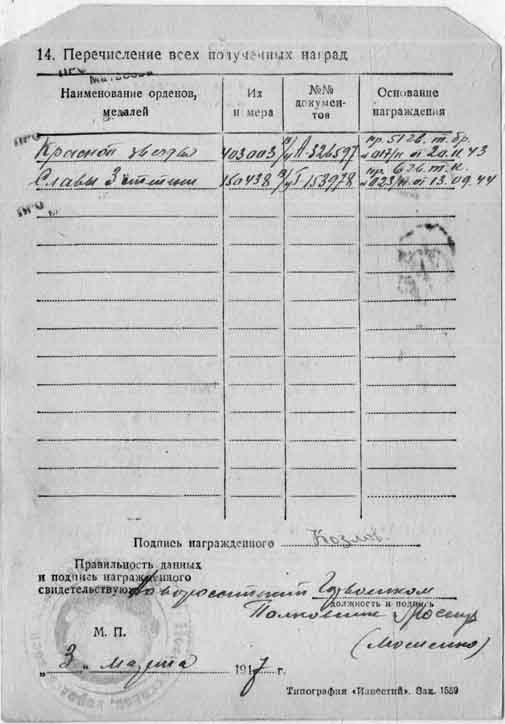 14. Перечисление всех полученных наград
Наименование орденов, медалей
Их номера
№№ документов
Основание награждения
Красной звезды 403003 А-326597 пр. 51 гв. т. бр. 20.11.43
Славы 3 степени 150438 Г-153978 пр. 6 гв. т. к. № 023/н от 13.09.44
Подпись награжденного Козлов
Правильность данных
и подпись награжденного
свидетельствую: Новороссийский Горвоенком
должность и подпись
Полковник
М. П.
(Мошенко)
„3" марта 1947 г.
Типография «Известий». Зак. 1559